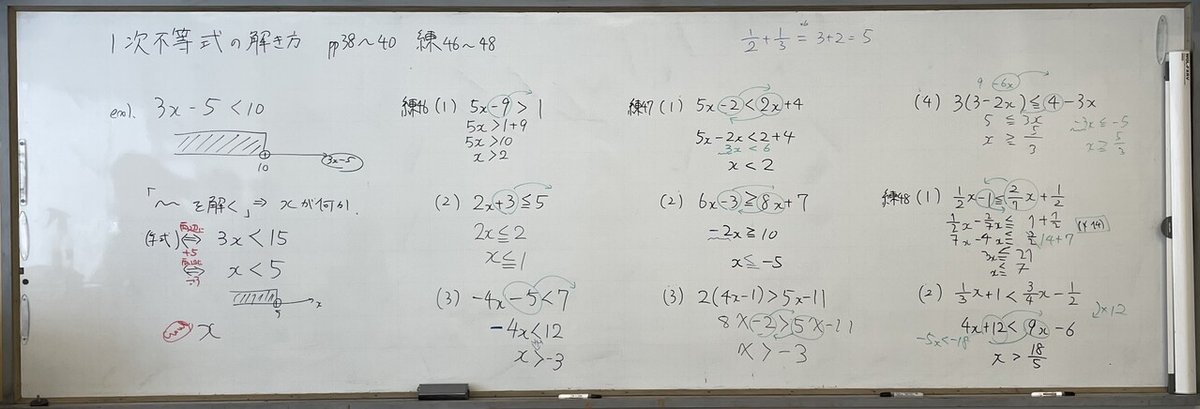 1次不等式の解き方 pp38～40 練46～48
1/2 + 1/3 = 3+2=5
×6
ex1. 3x-5<10
10 3x-5
「～を解く」⇒ xが何か.
(与式) ⇔ 3x<15
両辺に
+5
⇔ x<5
÷3
5 x
x
練46 (1) 5x-9>1
5x>1+9
5x>10
x>2
(2) 2x+3≦5
2x≦2
x≦1
(3) -4x-5<7
-4x<12
x>-3
練47 (1) 5x-2<2x+4
5x-2x<2+4
3x<6
x<2
(2) 6x-3≧8x+7
-2x≧10
x≦-5
(3) 2(4x-1)>5x-11
8x-2>5x-11
x>-3
9 -6x
(4) 3(3-2x)≦4-3x
5≦3x
x≧5/3
-3x≦-5
x≧5/3
練48 (1) 1/2x-1≦2/7x+1/2
1/2x-2/7x≦1+1/2
(×14)
7x-4x≦14+7
3x≦21
x≦7
(2) 1/3x+1<3/4x-1/2
×12
4x+12<9x-6
-5x<-18
x>18/5